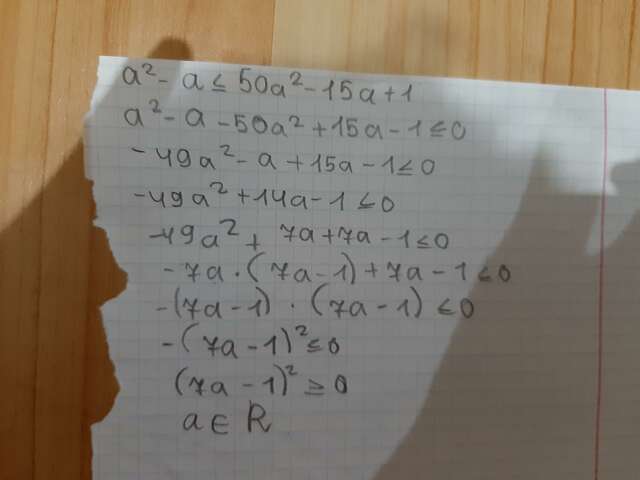 a² - a ≤ 50a² - 15a + 1
a² - a - 50a² + 15a - 1 ≤ 0
-49a² - a + 15a - 1 ≤ 0
-49a² + 14a - 1 ≤ 0
-49a² + 7a + 7a - 1 ≤ 0
-7a · (7a - 1) + 7a - 1 ≤ 0
-(7a - 1) · (7a - 1) ≤ 0
-(7a - 1)² ≤ 0
(7a - 1)² ≥ 0
a ∈ R